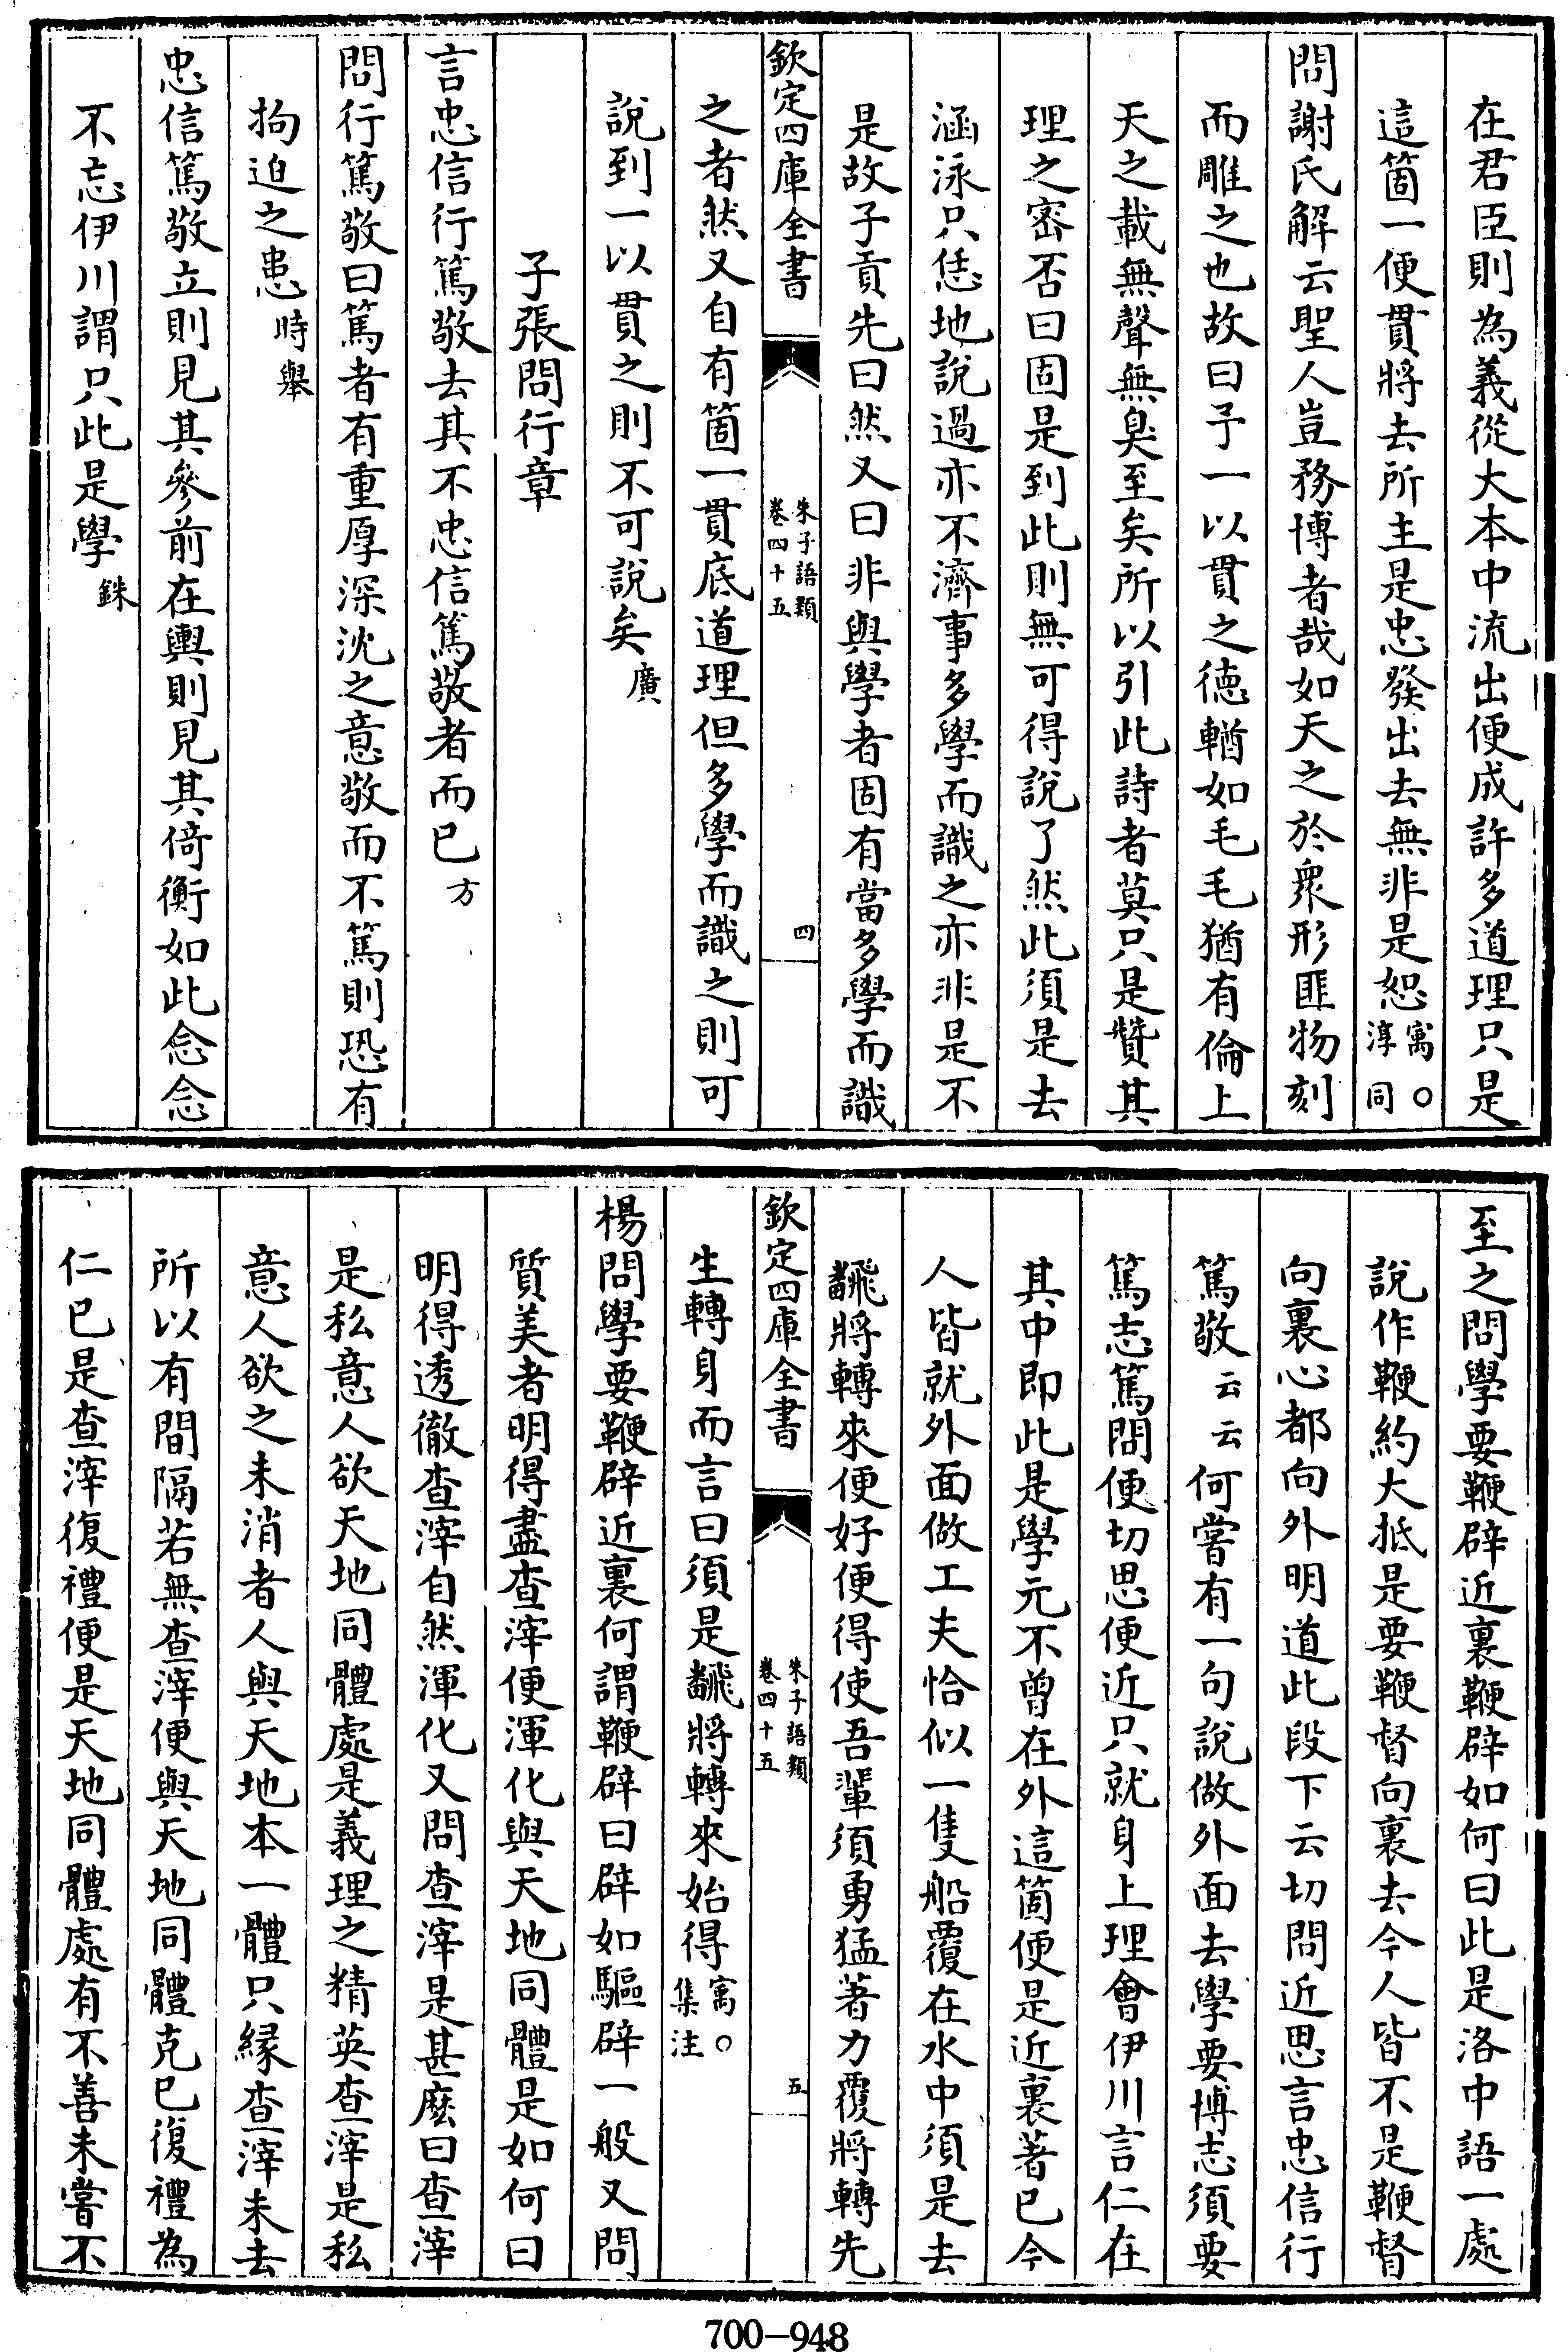 在君臣則為義從大本中流出便成許多道理只是
這箇一便貫將去所主是忠發出去無非是恕寓○淳同
問謝氏解云聖人豈務博者哉如天之於衆形匪物刻
而雕之也故曰予一以貫之徳輶如毛毛猶有倫上
天之載無聲無臭至矣所以引此詩者莫只是贊其
理之密否曰固是到此則無可得說了然此須是去
涵泳只恁地說過亦不濟事多學而識之亦非是不
是故子貢先曰然又曰非與學者固有當多學而識
欽定四庫全書
朱子語類
卷四十五
四
之者然又自有箇一貫底道理但多學而識之則可
說到一以貫之則不可說矣廣
子張問行章
言忠信行篤敬去其不忠信篤敬者而已方
問行篤敬曰篤者有重厚深沈之意敬而不篤則恐有
拘迫之患時舉
忠信篤敬立則見其參前在輿則見其倚衡如此念念
不忘伊川謂只此是學銖
至之問學要鞭辟近裏鞭辟如何曰此是洛中語一處
說作鞭約大抵是要鞭督向裏去今人皆不是鞭督
向裏心都向外明道此段下云切問近思言忠信行
篤敬云云何嘗有一句說做外面去學要博志須要
篤志篤問便切思便近只就身上理會伊川言仁在
其中即此是學元不曾在外這箇便是近裏著已今
人皆就外面做工夫恰似一隻船覆在水中須是去
飜將轉來便好便得使吾輩須勇猛著力覆將轉先
欽定四庫全書
朱子語類
卷四十五
五
生轉身而言曰須是飜將轉來始得寓○集注
楊問學要鞭辟近裏何謂鞭辟曰辟如驅辟一般又問
質美者明得盡查滓便渾化與天地同體是如何曰
明得透徹查滓自然渾化又問查滓是甚麽曰查滓
是私意人欲天地同體處是義理之精英查滓是私
意人欲之未消者人與天地本一體只緣查滓未去
所以有間隔若無查滓便與天地同體克已復禮為
仁已是查滓復禮便是天地同體處有不善未嘗不
700-948